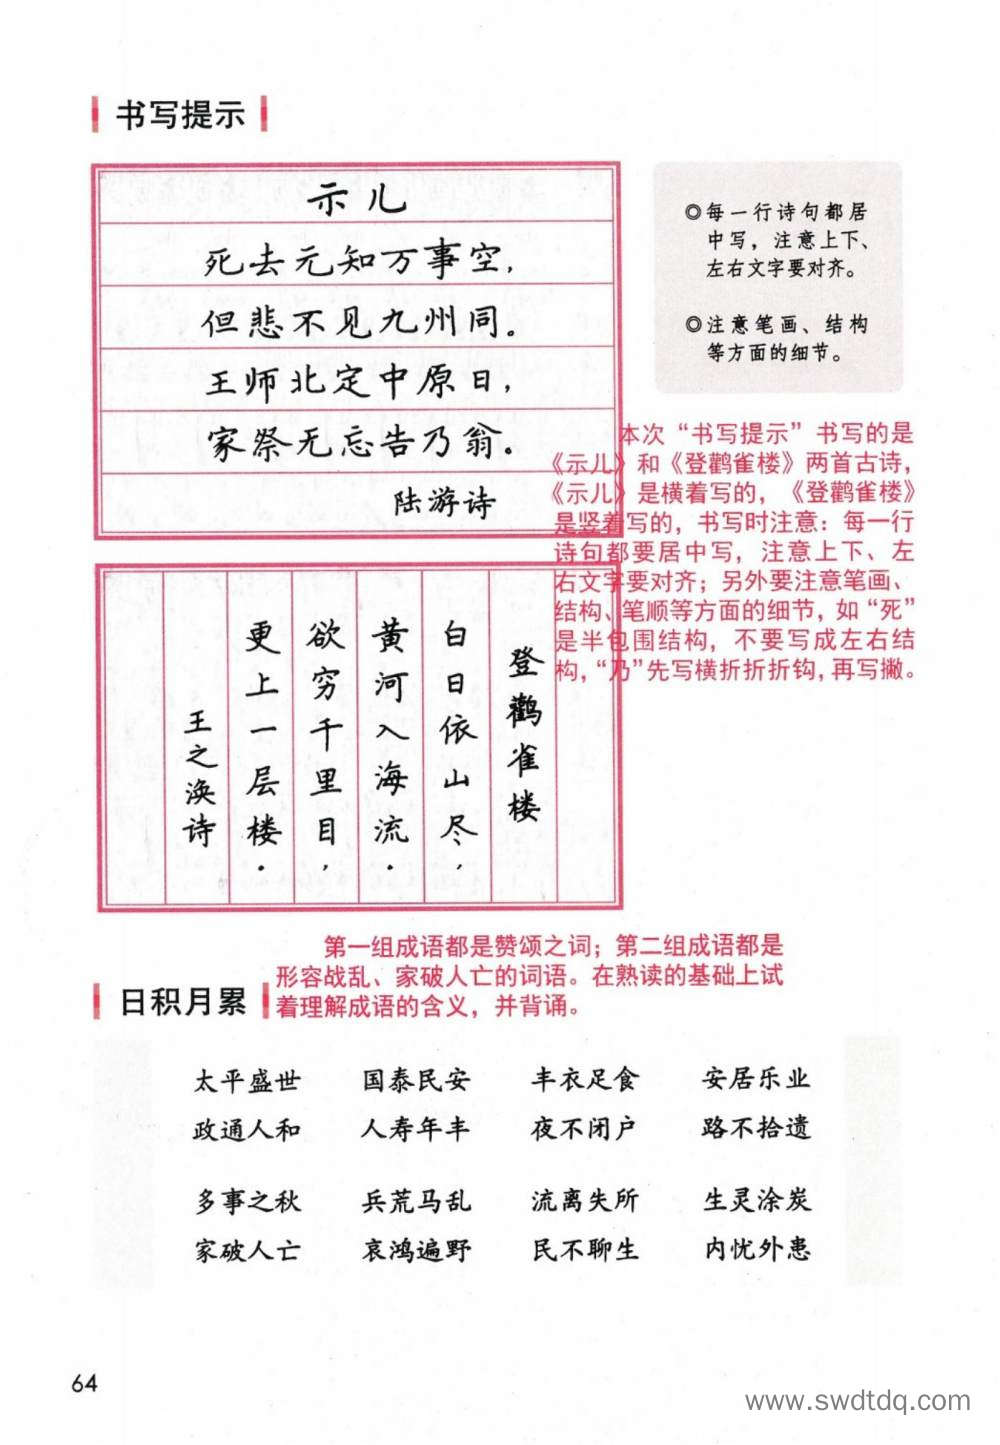 书写提示
示儿
死去元知万事空,
但悲不见九州同。
王师北定中原日,
家祭无忘告乃翁。
陆游诗
◎每一行诗句都居
中写，注意上下、
左右文字要对齐。
◎注意笔画、结构
等方面的细节。
本次“书写提示”书写的是
《示儿》和《登鹳雀楼》两首古诗，
《示儿》是横着写的，《登鹳雀楼》
是竖着写的，书写时注意：每一行
诗句都要居中写，注意上下、左
右文字要对齐；另外要注意笔画、
结构、笔顺等方面的细节，如“死”
是半包围结构，不要写成左右结
构，“乃”先写横折折折钩，再写撇。
登鹳雀楼
白日依山尽，
黄河入海流.
欲穷千里目，
更上一层楼.
王之涣诗
第一组成语都是赞颂之词；第二组成语都是
形容战乱、家破人亡的词语。在熟读的基础上试
着理解成语的含义，并背诵。
日积月累
太平盛世 国泰民安 丰衣足食 安居乐业
政通人和 人寿年丰 夜不闭户 路不拾遗
多事之秋 兵荒马乱 流离失所 生灵涂炭
家破人亡 哀鸿遍野 民不聊生 内忧外患
64
www.swdtdq.com